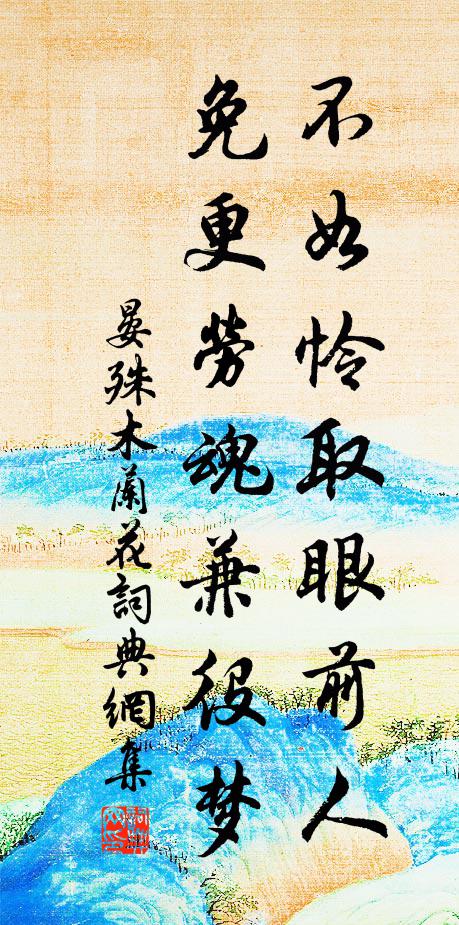 不如怜取眼前人
免更勞魂兼役梦
晏殊木蘭花詞典網集